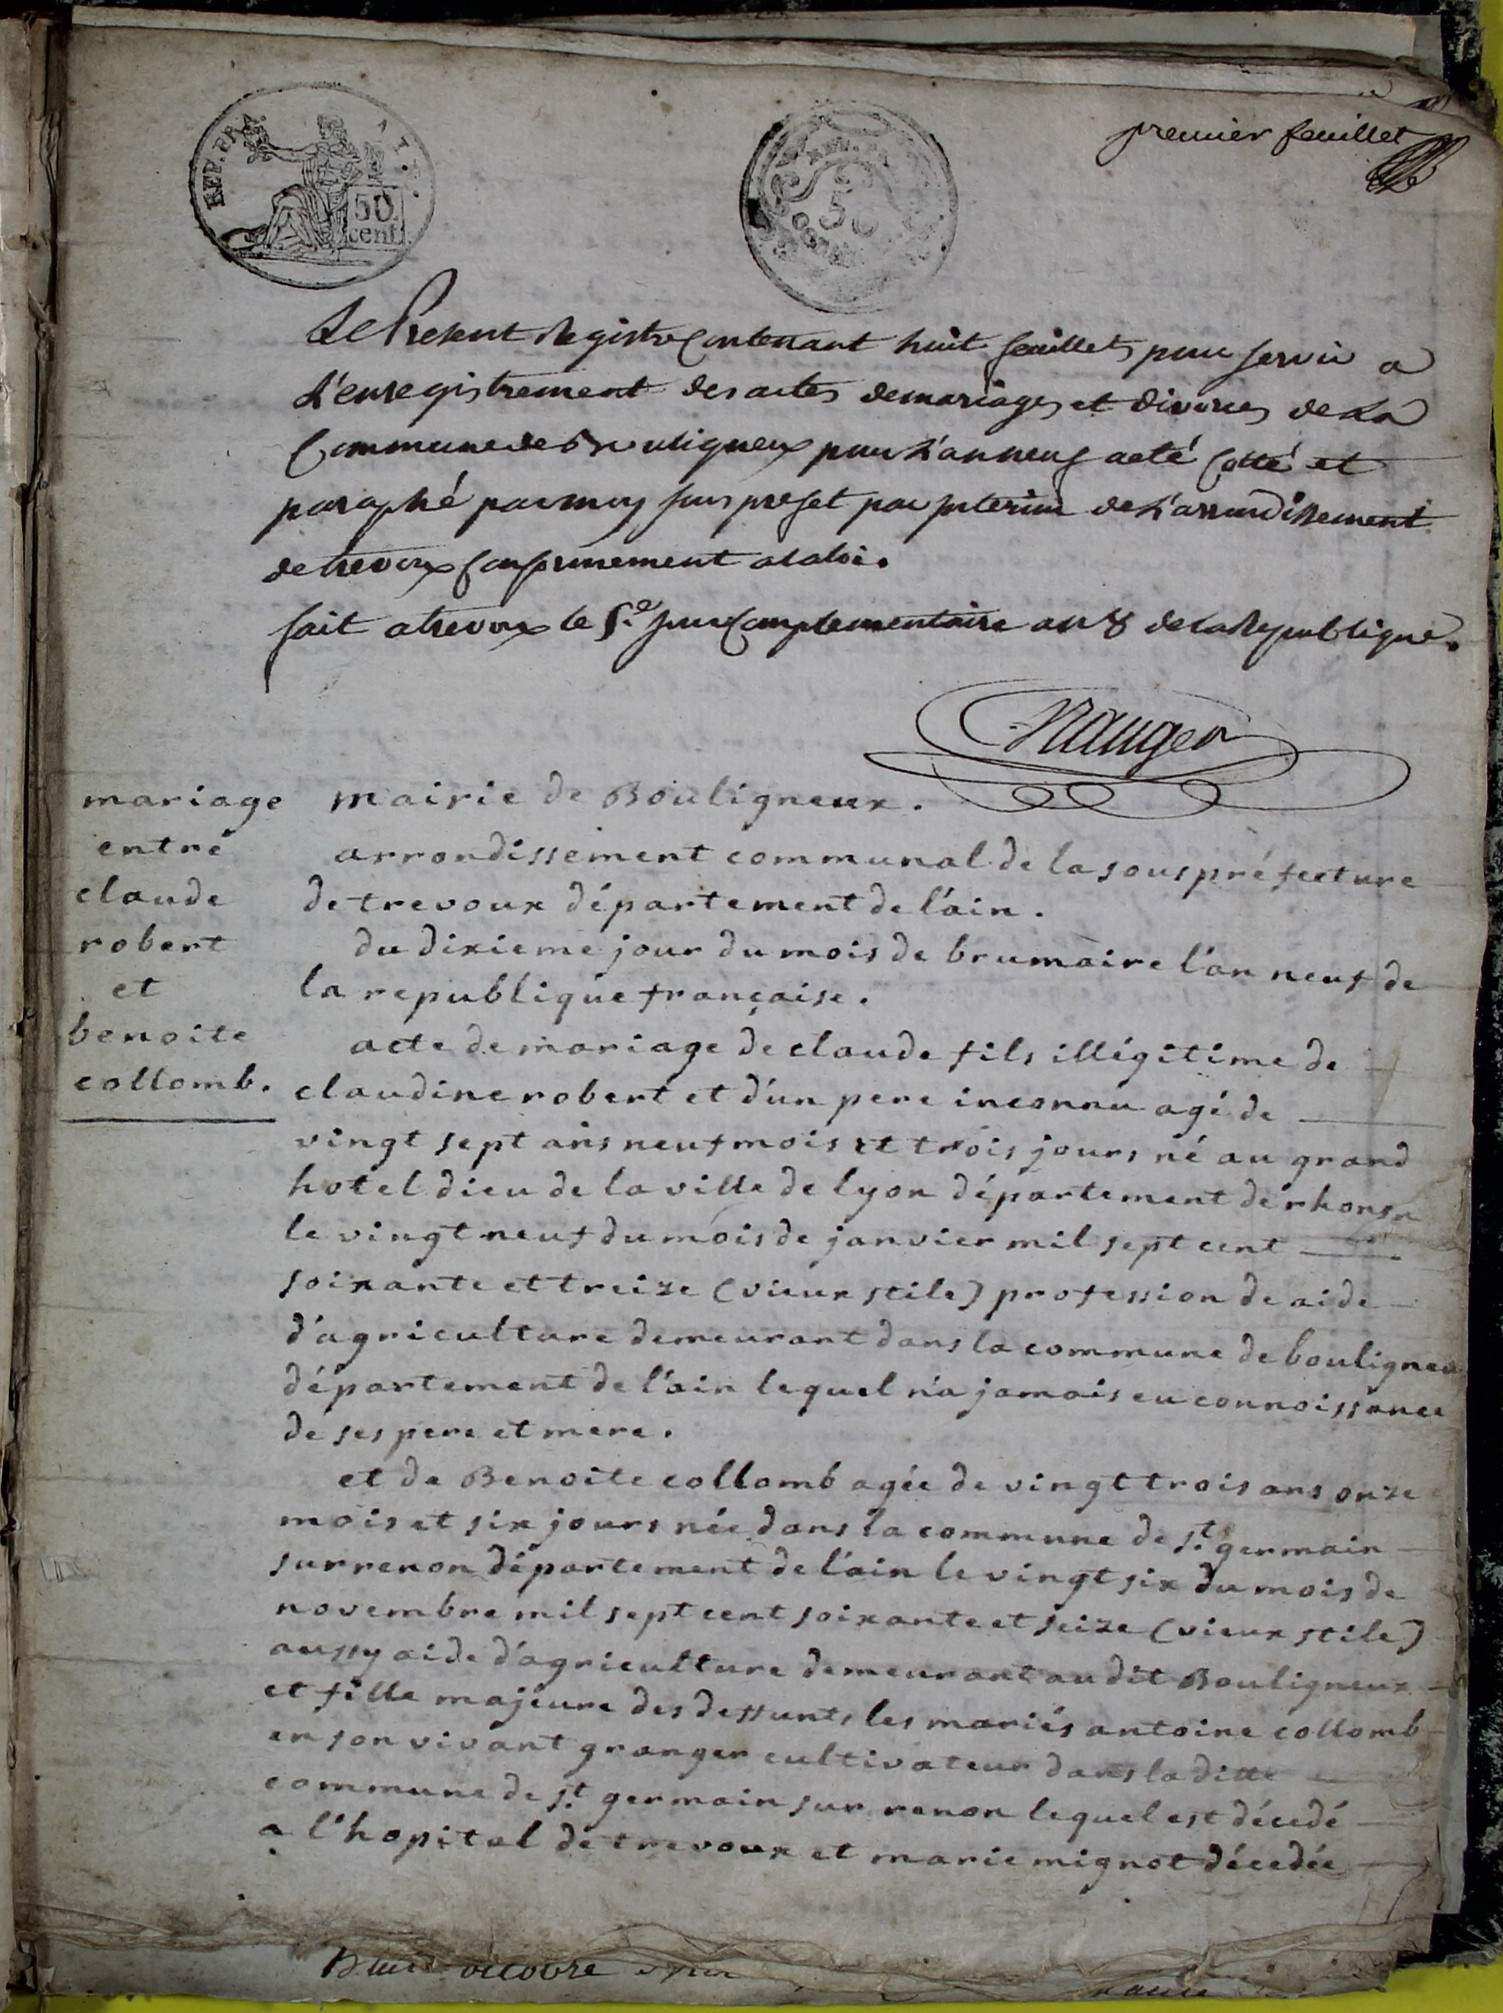 premier feuillet
REP. FRA.
50
cent.
Le Present Registre Contenant huit feuillets pour servir a
L'enregistrement des actes de mariages et divorces de La
Commune de Bouligneux pour L'an neuf a eté Cotté et
paraphé par moy sous prefet par interim de L'arrondissement
de trevoux Conformement a la loi.
fait a trevoux le 5.e jour Complementaire an 8 de la Republique.
mariage
entre
claude
robert
et
benoite
collomb.
mairie de Bouligneux.
arrondissement communal de la sous préfecture
de trevoux département de l'ain.
du dixieme jour du mois de brumaire l'an neuf de
la republique française.
acte de mariage de claude fils illégitime de
claudine robert et d'un pere inconnu agé de
vingt sept ans neuf mois et trois jours né au grand
hotel dieu de la ville de lyon département de rhone
le vingt neuf du mois de janvier mil sept cent
soixante et treize (vieux stile) profession de aide
d'agriculture demeurant dans la commune de bouligneux
département de l'ain lequel n'a jamais eu connoissance
de ses pere et mere.
et de Benoite collomb agée de vingt trois ans onze
mois et six jours née dans la commune de st. germain
sur renon département de l'ain le vingt six du mois de
novembre mil sept cent soixante et seize (vieux stile)
aussy aide d'agriculture demeurant au dit Bouligneux
et fille majeure des deffunts les mariés antoine collomb
en son vivant granger cultivateur dans la ditte
commune de st. germain sur renon lequel est décedé
a l'hopital de trevoux et marie mignot décedée